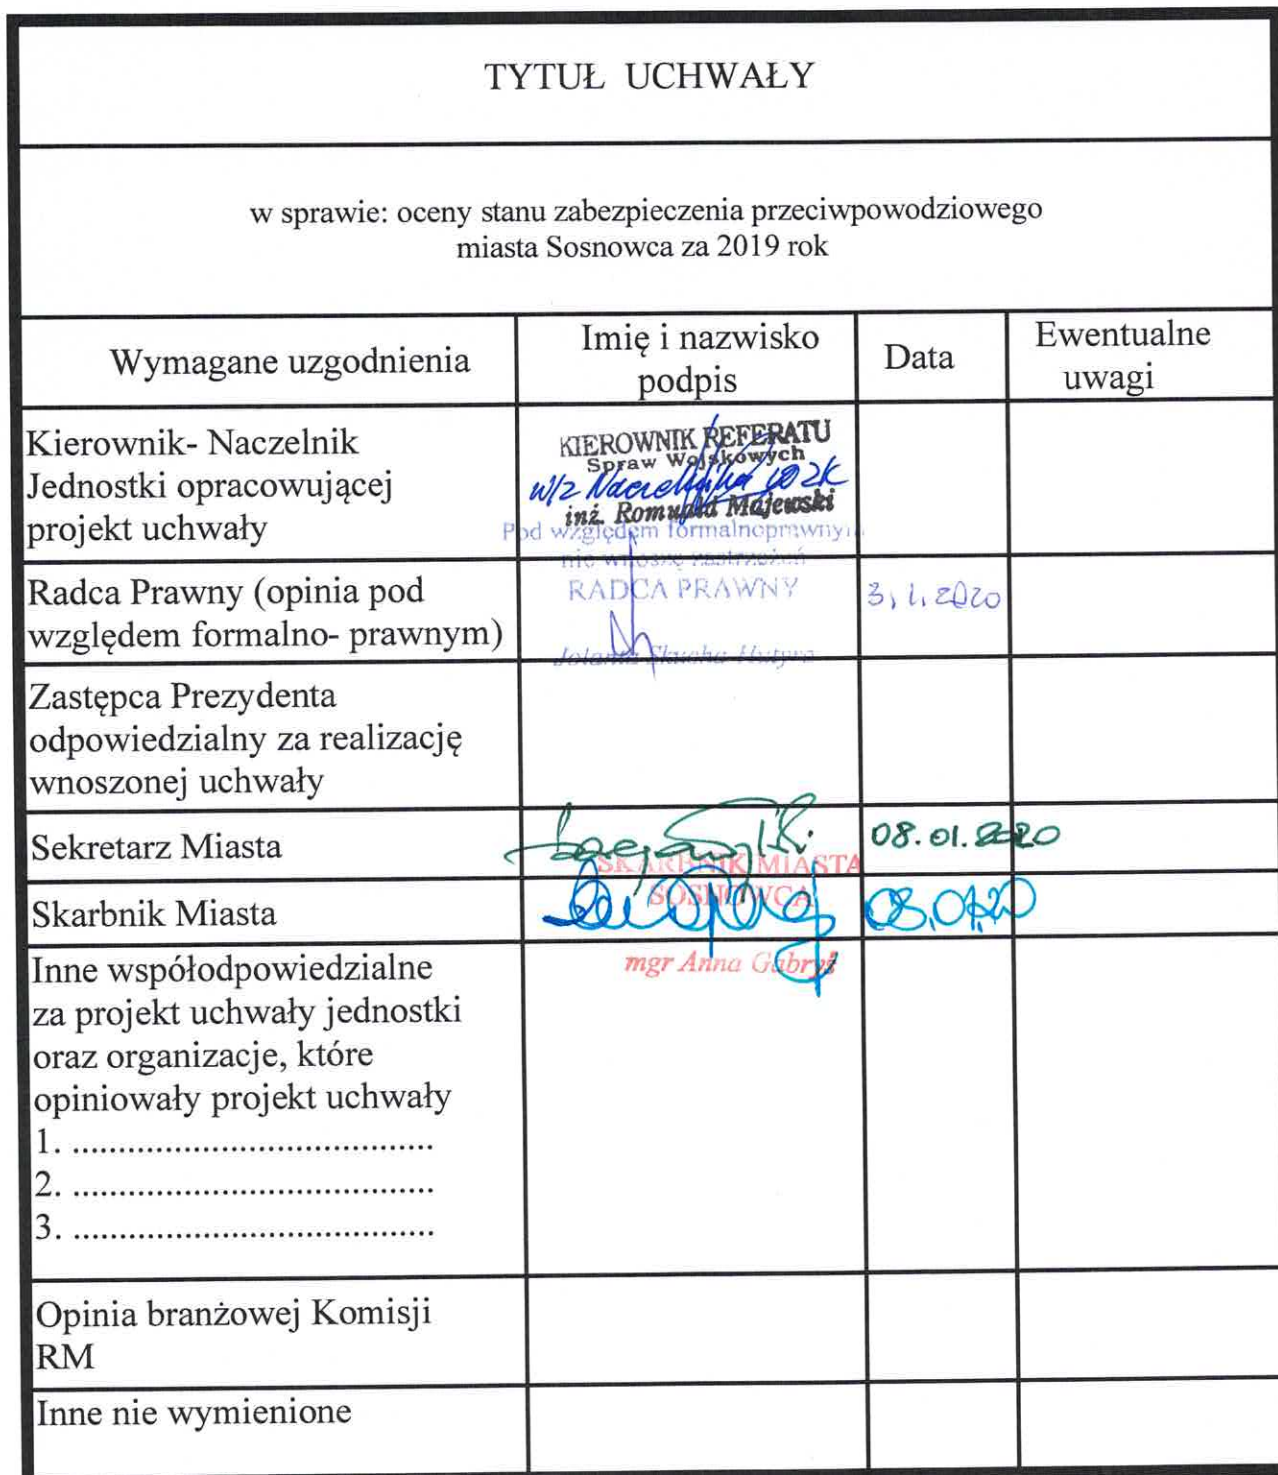 TYTUŁ UCHWAŁY
w sprawie: oceny stanu zabezpieczenia przeciwpowodziowego
miasta Sosnowca za 2019 rok
Wymagane uzgodnienia
Imię i nazwisko
podpis
Data
Ewentualne
uwagi
Kierownik- Naczelnik
Jednostki opracowującej
projekt uchwały
KIEROWNIK REFERATU
Spraw Wojskowych
w/z Naczelnika WOZK
inż. Romuald Majewski
Pod względem formalnoprawnym
nie wnoszę zastrzeżeń
Radca Prawny (opinia pod
względem formalno- prawnym)
RADCA PRAWNY
Jolanta Skucha-Hutyra
3, 1, 2020
Zastępca Prezydenta
odpowiedzialny za realizację
wnoszonej uchwały
Sekretarz Miasta
08.01.2020
Skarbnik Miasta
SKARBNIK MIASTA
SOSNOWCA
mgr Anna Gabryś
08.01.20
Inne współodpowiedzialne
za projekt uchwały jednostki
oraz organizacje, które
opiniowały projekt uchwały
1. ......................................
2. ......................................
3. ......................................
Opinia branżowej Komisji
RM
Inne nie wymienione